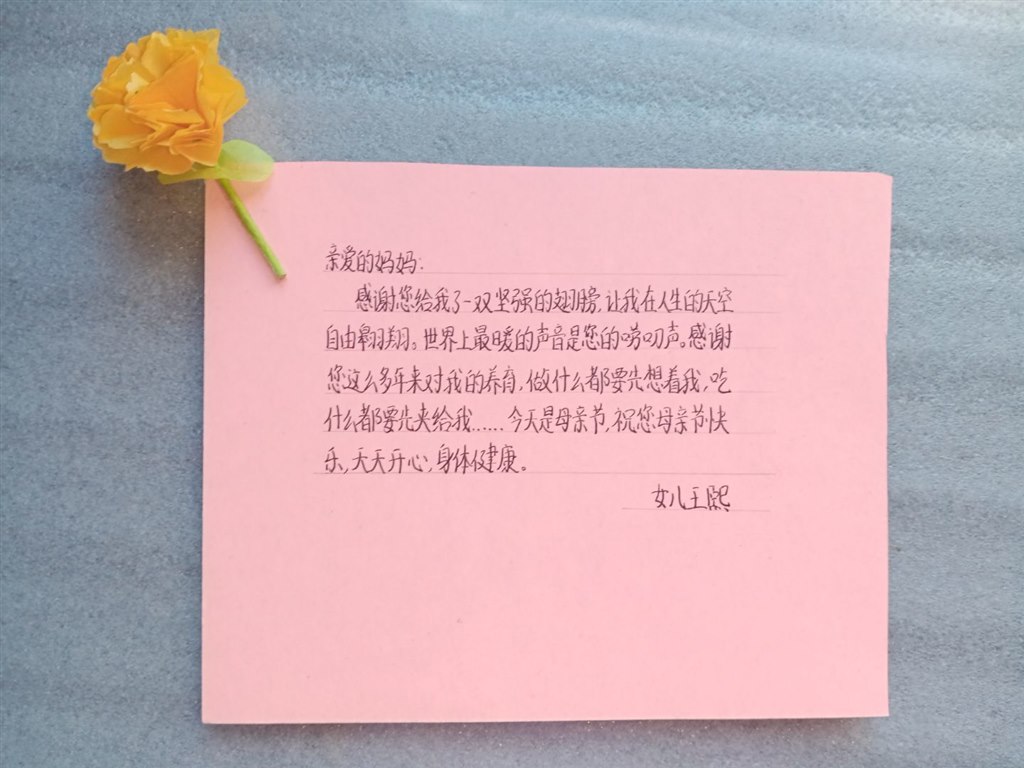 亲爱的妈妈:
感谢您给我了一双坚强的翅膀,让我在人生的天空
自由翱翔。世界上最暖的声音是您的唠叨声。感谢
您这么多年来对我的养育,做什么都要先想着我,吃
什么都要先夹给我......今天是母亲节,祝您母亲节快
乐,天天开心,身体健康。
女儿王熙